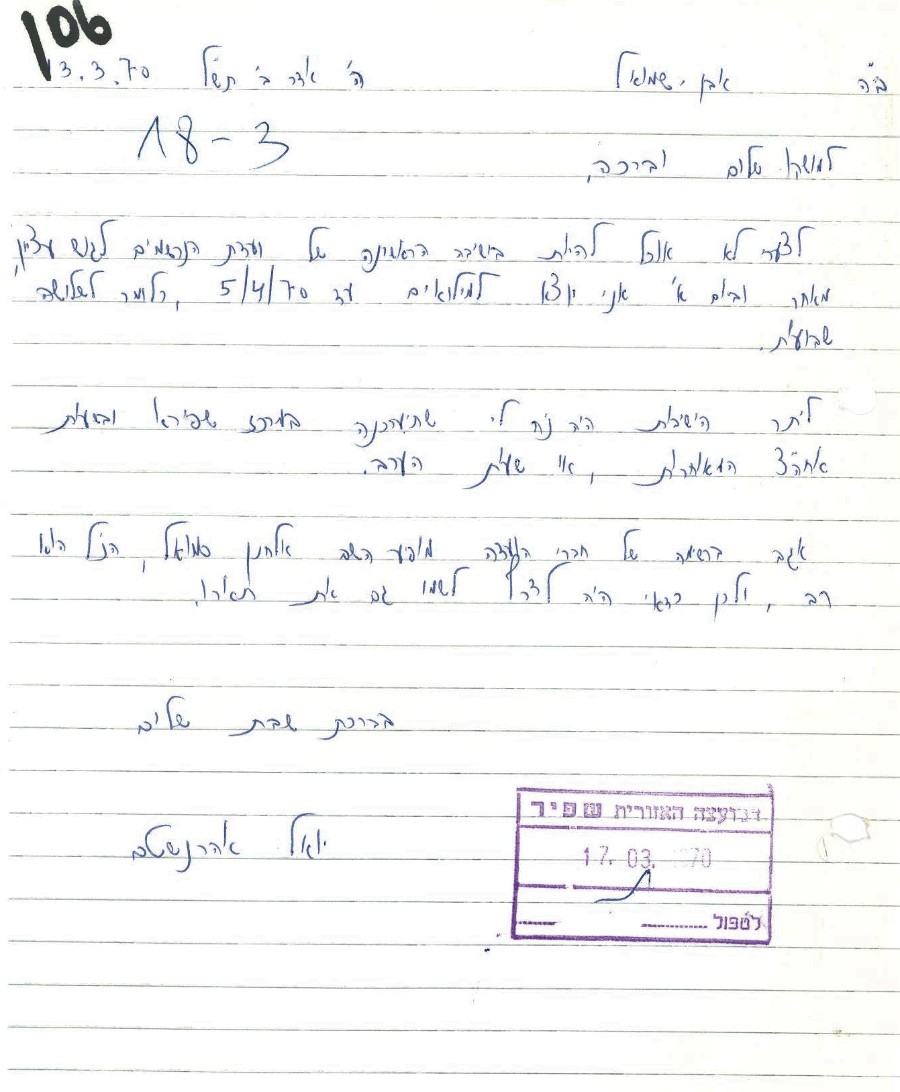 106
ב"ה אבן-שמואל ה' אדר ב' תש"ל 13.3.70
18-3
למושקו שלום וברכה,
לצערי לא אוכל להיות בישיבה הראשונה של ועדת הנרשמים לגוש עציון,
מאחר וביום א' אני יוצא למילואים עד 5/4/70, כלומר לשלושה
שבועות.
ליתר הישיבות היה נוח לי שתיערכנה במרכז שפירא ובשעות
אחה"צ המאוחרות, או שעות הערב.
אגב ברשימה של חברי הועדה מופיע השם אלחנן סמואל, הנ"ל הוא
רב, ולכן כדאי היה לצרף לשמו גם את תוארו.
בברכת שבת שלום
יואל אהרנשטם
המועצה האזורית שפיר
17. 03. 1970
לטפול